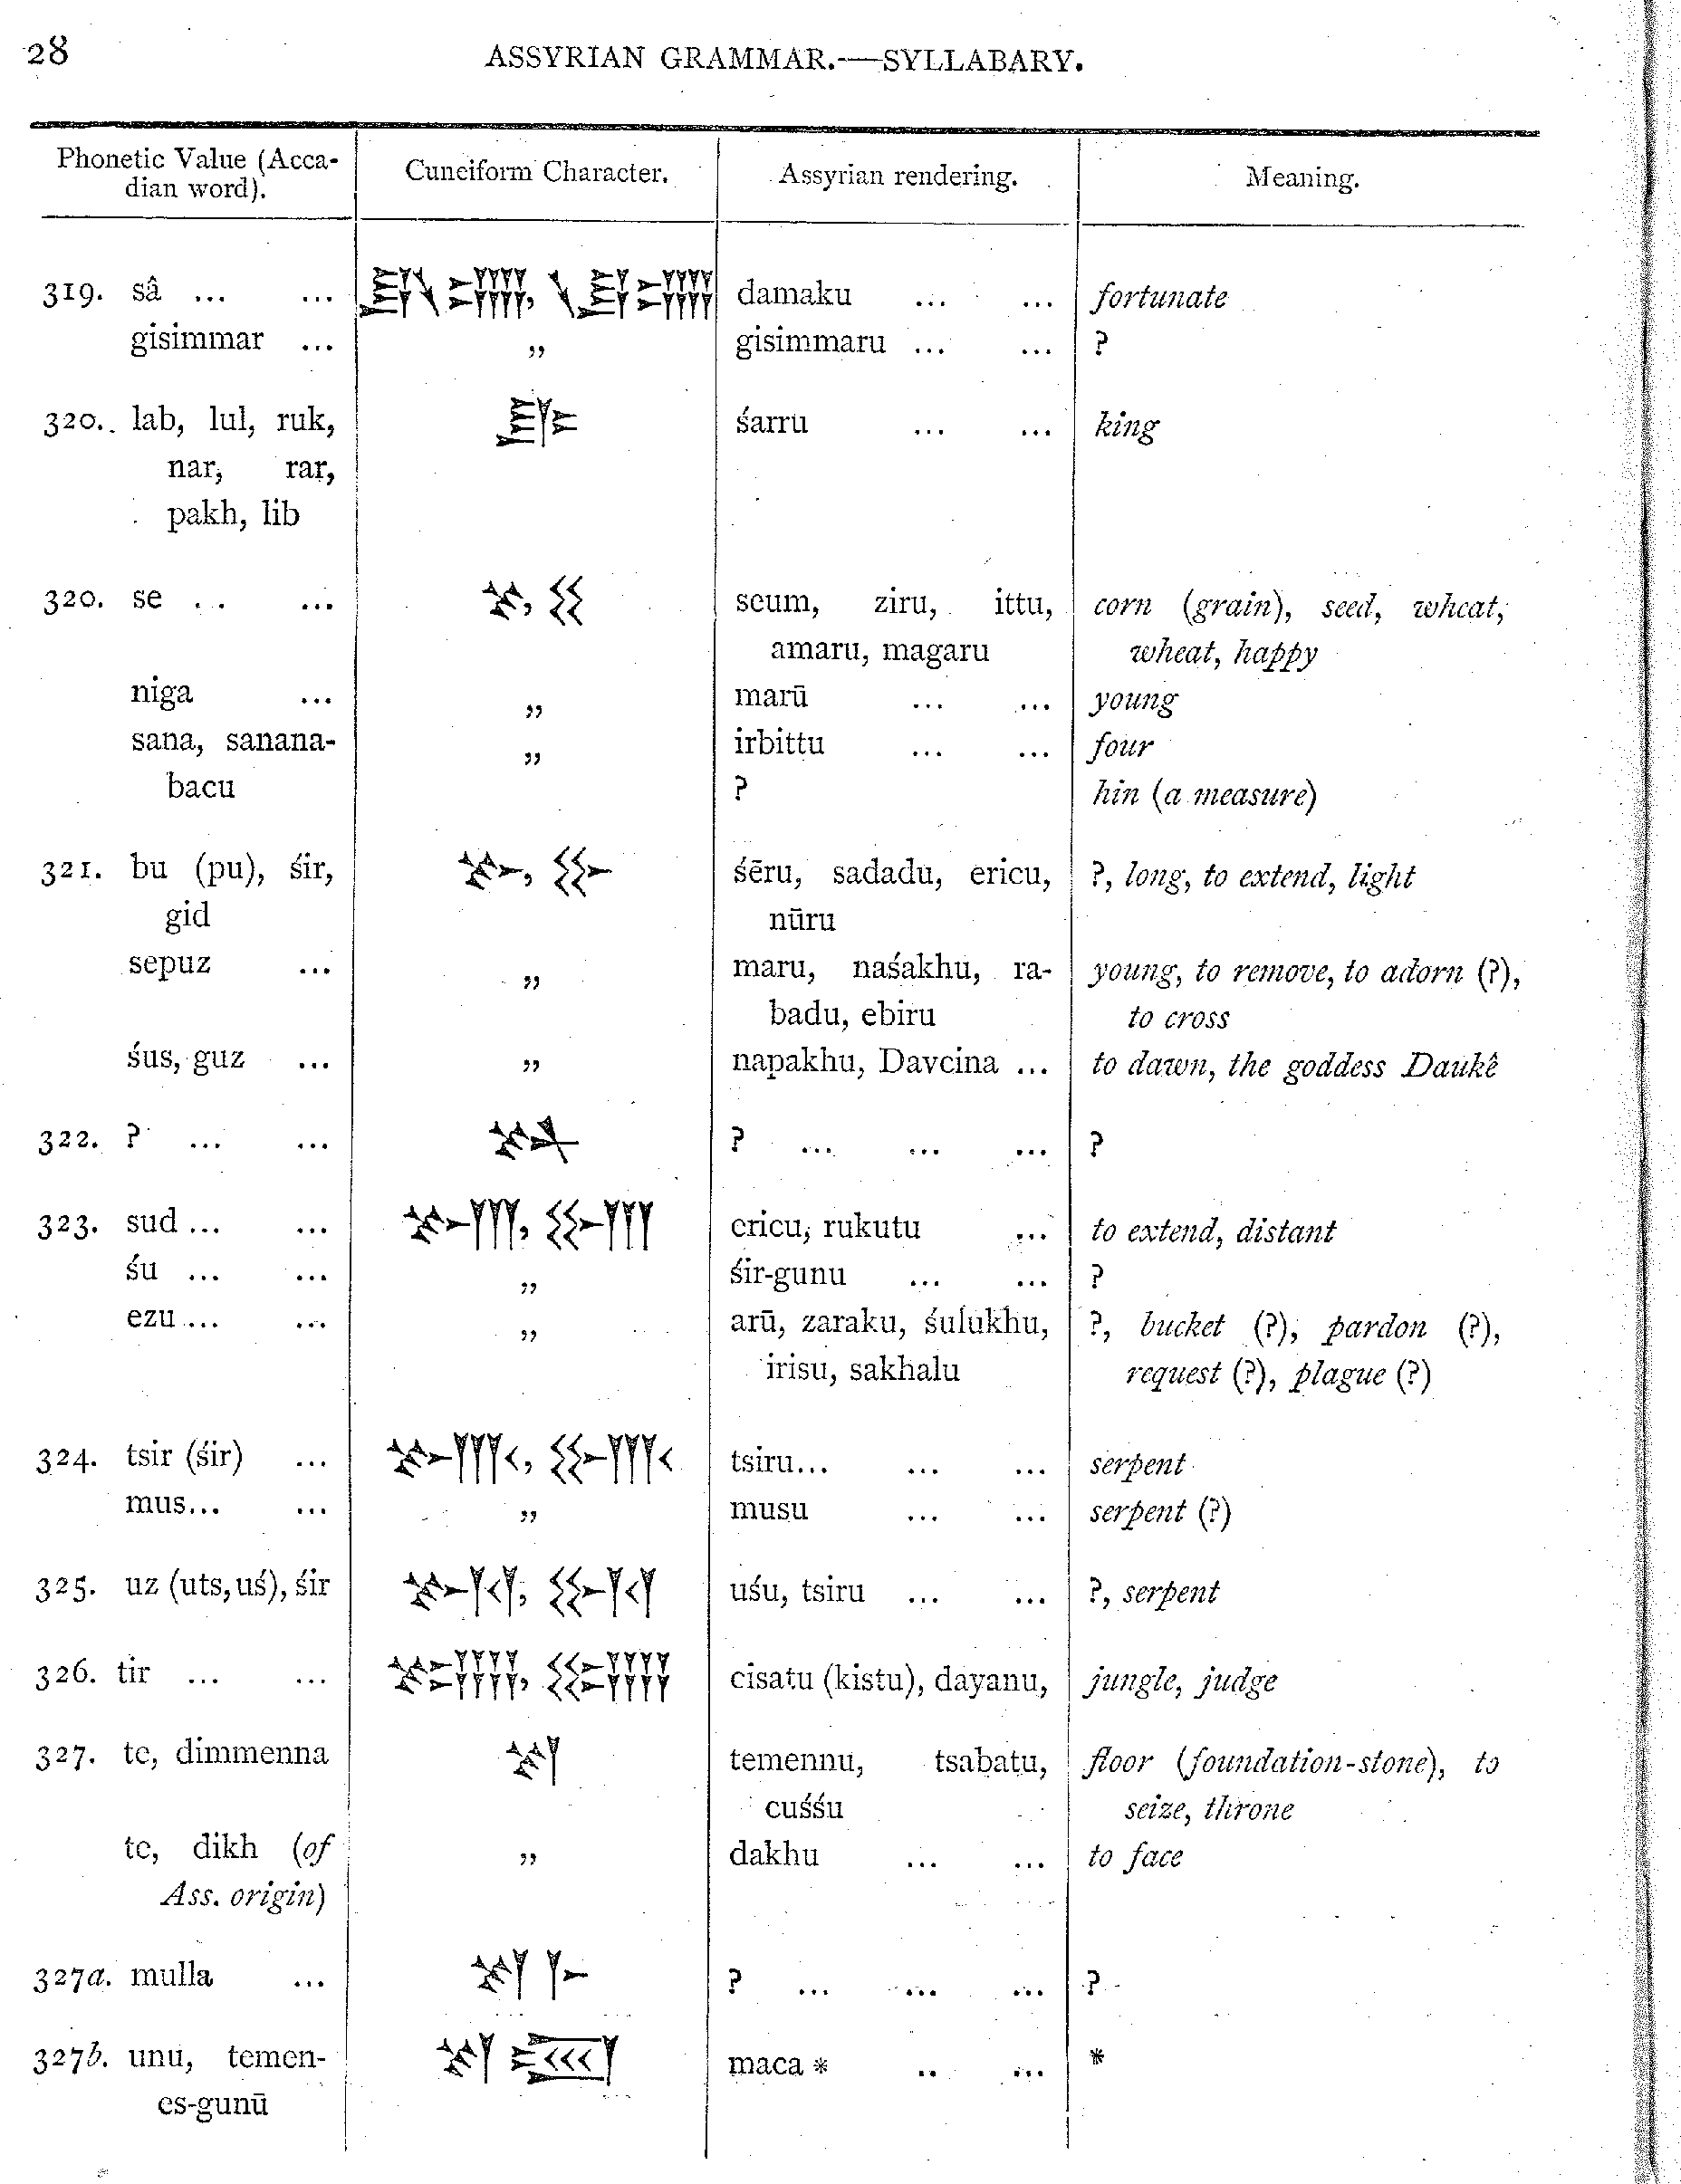 28
ASSYRIAN GRAMMAR.—SYLLABARY.
Phonetic Value (Acca-
dian word).
Cuneiform Character.
Assyrian rendering.
Meaning.
319. sâ ... ... damaku ... ... fortunate
gisimmar ... „ gisimmaru ... ... ?
320. lab, lul, ruk, śarru ... ... king
nar, rar,
pakh, lib
320. se .. ... seum, ziru, ittu, corn (grain), seed, wheat,
amaru, magaru wheat, happy
niga ... „ marū ... ... young
sana, sanana- „ irbittu ... ... four
bacu ? hin (a measure)
321. bu (pu), śir, śēru, sadadu, ericu, ?, long, to extend, light
gid nūru
sepuz ... „ maru, naśakhu, ra- young, to remove, to adorn (?),
badu, ebiru to cross
śus, guz ... „ napakhu, Davcina ... to dawn, the goddess Daukê
322. ? ... ... ? ... ... ... ?
323. sud ... ... ericu, rukutu ... to extend, distant
śu ... ... „ śir-gunu ... ... ?
ezu ... ... „ arū, zaraku, śulukhu, ?, bucket (?), pardon (?),
irisu, sakhalu request (?), plague (?)
324. tsir (śir) ... tsiru... ... ... serpent
mus... ... „ musu ... ... serpent (?)
325. uz (uts, uś), śir uśu, tsiru ... ... ?, serpent
326. tir ... ... cisatu (kistu), dayanu, jungle, judge
327. te, dimmenna temennu, tsabatu, floor (foundation-stone), to
cuśśu seize, throne
te, dikh (of „ dakhu ... ... to face
Ass. origin)
327a. mulla ... ? ... ... ... ?
327b. unu, temen- maca * .. ... *
es-gunū